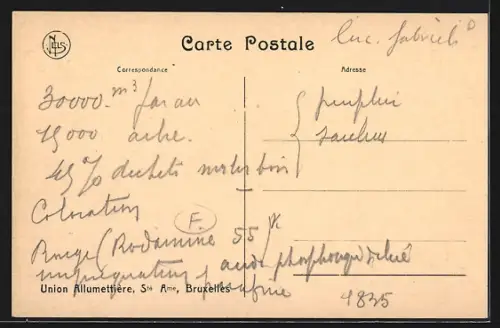 NELS
Carte Postale
Luc. Gabriels
Correspondance
Adresse
30000 m3 par an
peuplier
15 000 arbre
45 % dechets
bois
Coloration
F.
Rouge (Rodamine 55
acide phosphorique dilué
impregnation paraffine
Union Allumettière, Sté Ame, Bruxelles
4835